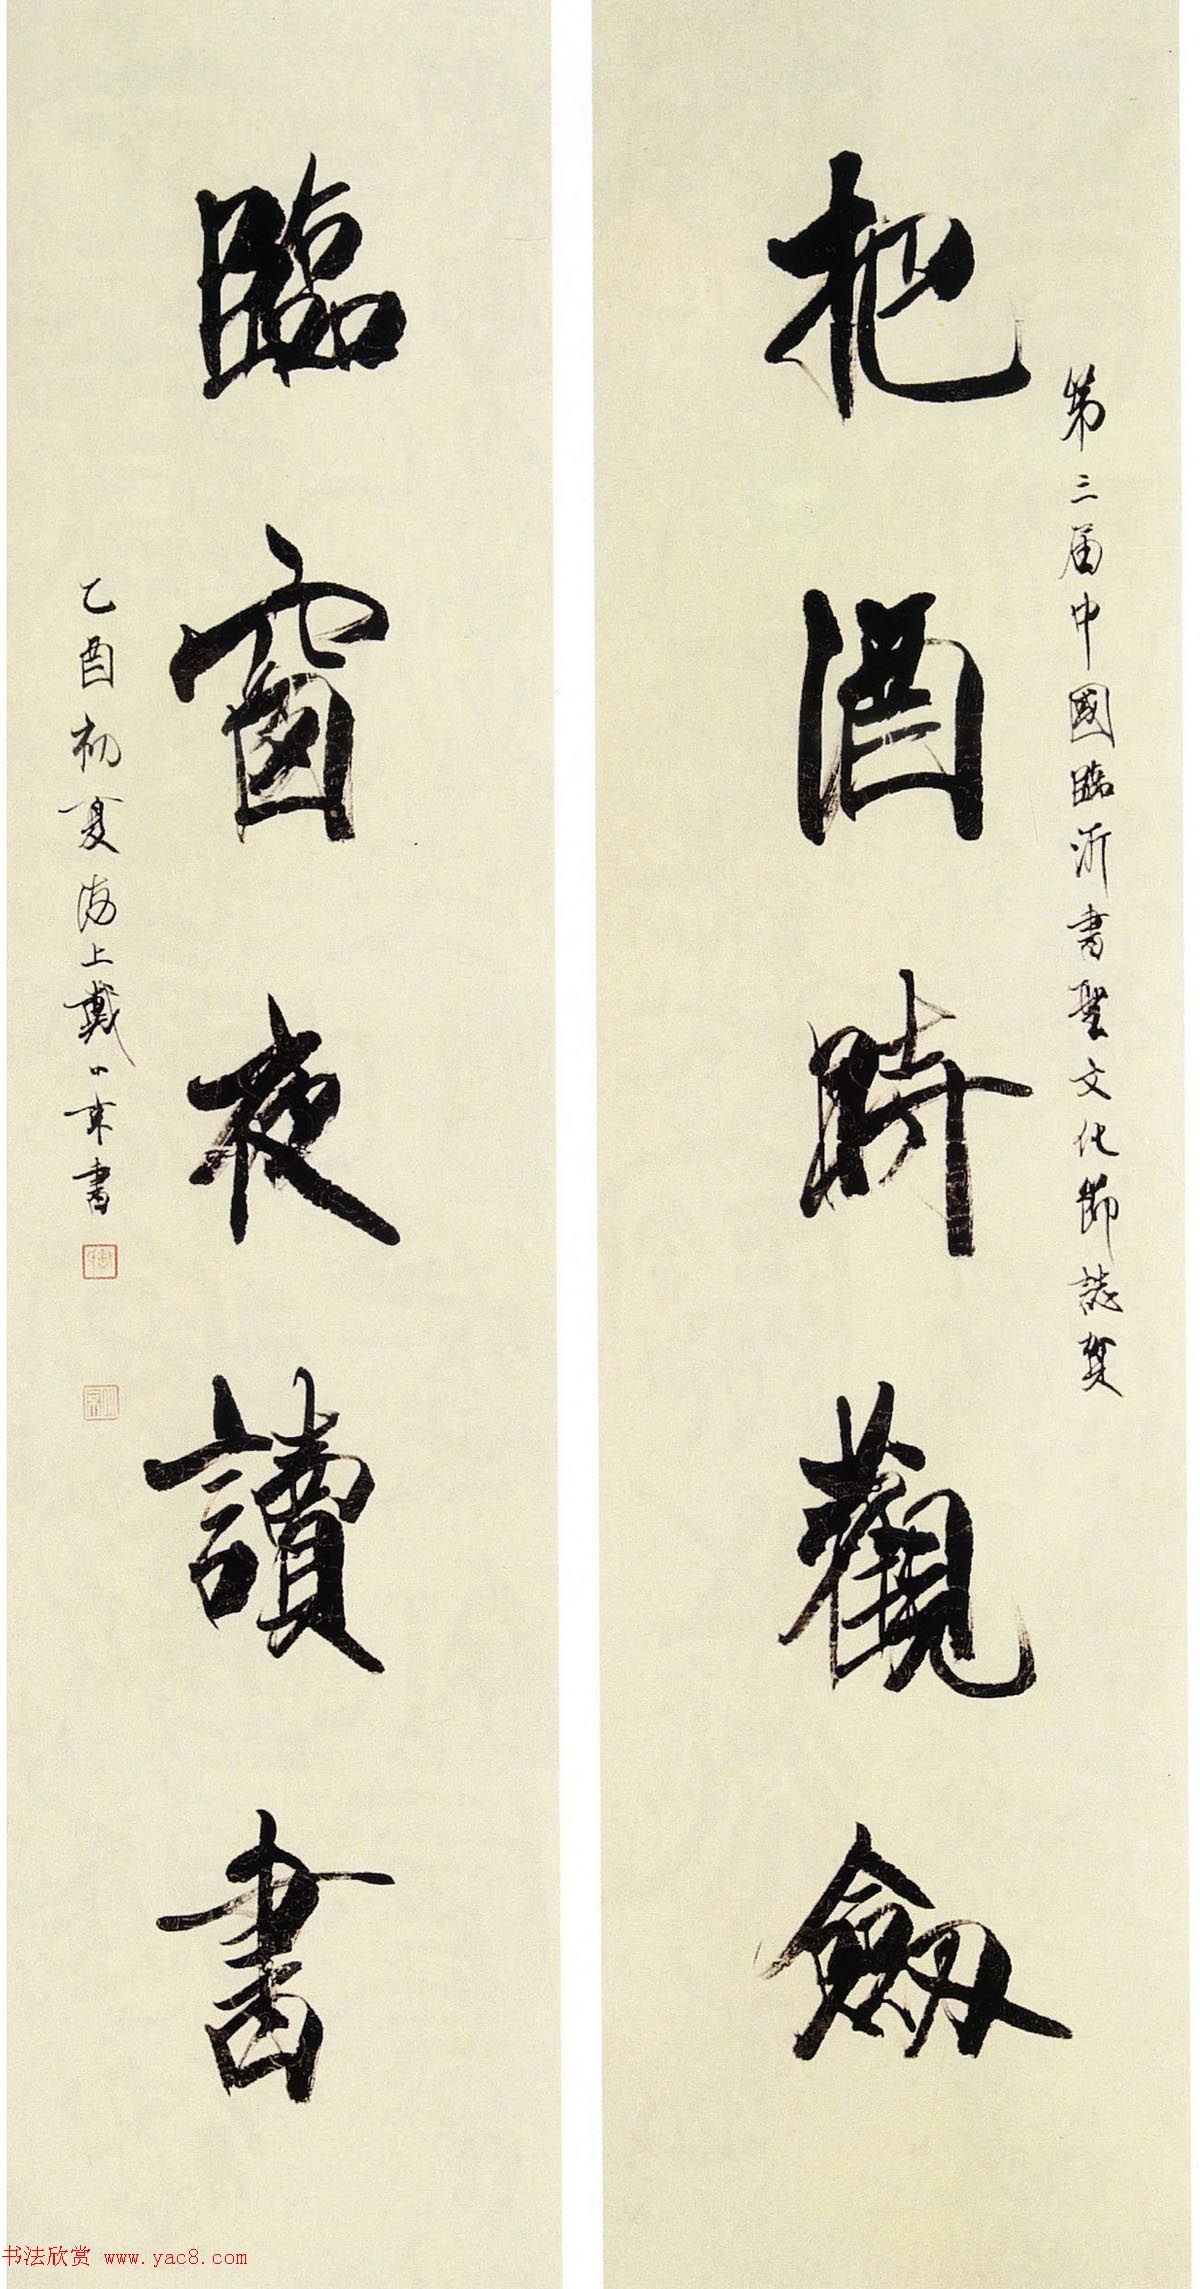 第三届中國臨沂書聖文化節誌賀
把酒時觀劍
臨窗夜讀書
乙酉初夏海上戴小京書
书法欣赏 www.yac8.com